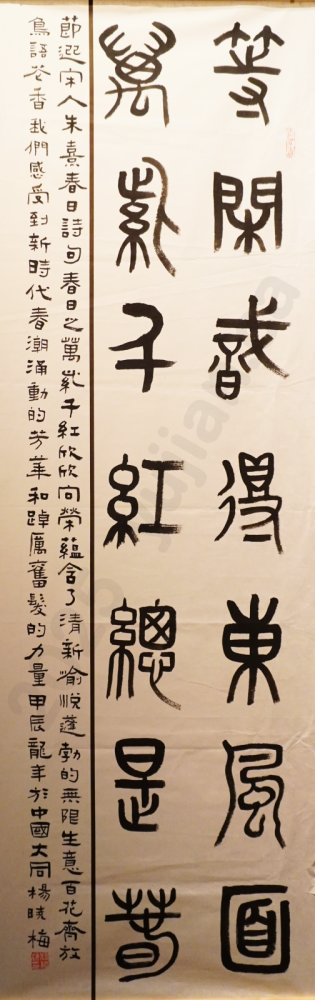 等閑識得東風面
萬紫千紅總是春
節選宋人朱熹春日詩句春日之萬紫千紅欣欣向榮蘊含了清新愉悅蓬勃的無限生意百花齊放
鳥語花香我們感受到新時代春潮涌動的芳華和踔厲奮髮的力量甲辰龍年於中國大同楊曉梅